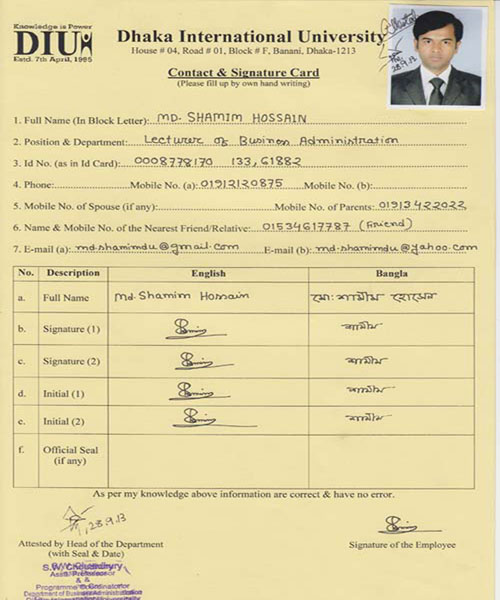 Knowledge is Power
DIU
Estd. 7th April, 1995
Dhaka International University
House # 04, Road # 01, Block # F, Banani, Dhaka-1213
Contact & Signature Card
(Please fill up by own hand writing)
28.9.13
1. Full Name (In Block Letter): MD. SHAMIM HOSSAIN
2. Position & Department: Lecturer of Business Administration
3. Id No. (as in Id Card): 0008778170 133,61882
4. Phone: Mobile No. (a): 01912120875 Mobile No. (b):
5. Mobile No. of Spouse (if any): Mobile No. of Parents: 01913422022
6. Name & Mobile No. of the Nearest Friend/Relative: 01534617787 (Friend)
7. E-mail (a): md.shamimdu@gmail.com E-mail (b): md.shamimdu@yahoo.com
No. Description English Bangla
a. Full Name Md. Shamim Hossain মো: শামীম হোসেন
b. Signature (1) শামীম
c. Signature (2) শামীম
d. Initial (1) শামীম
e. Initial (2) শামীম
f. Official Seal (if any)
As per my knowledge above information are correct & have no error.
28.9.13
Attested by Head of the Department
(with Seal & Date)
Signature of the Employee
S.W. Choudhury
Asstt. Professor
&
Programme Coordinator
Department of Business Administration